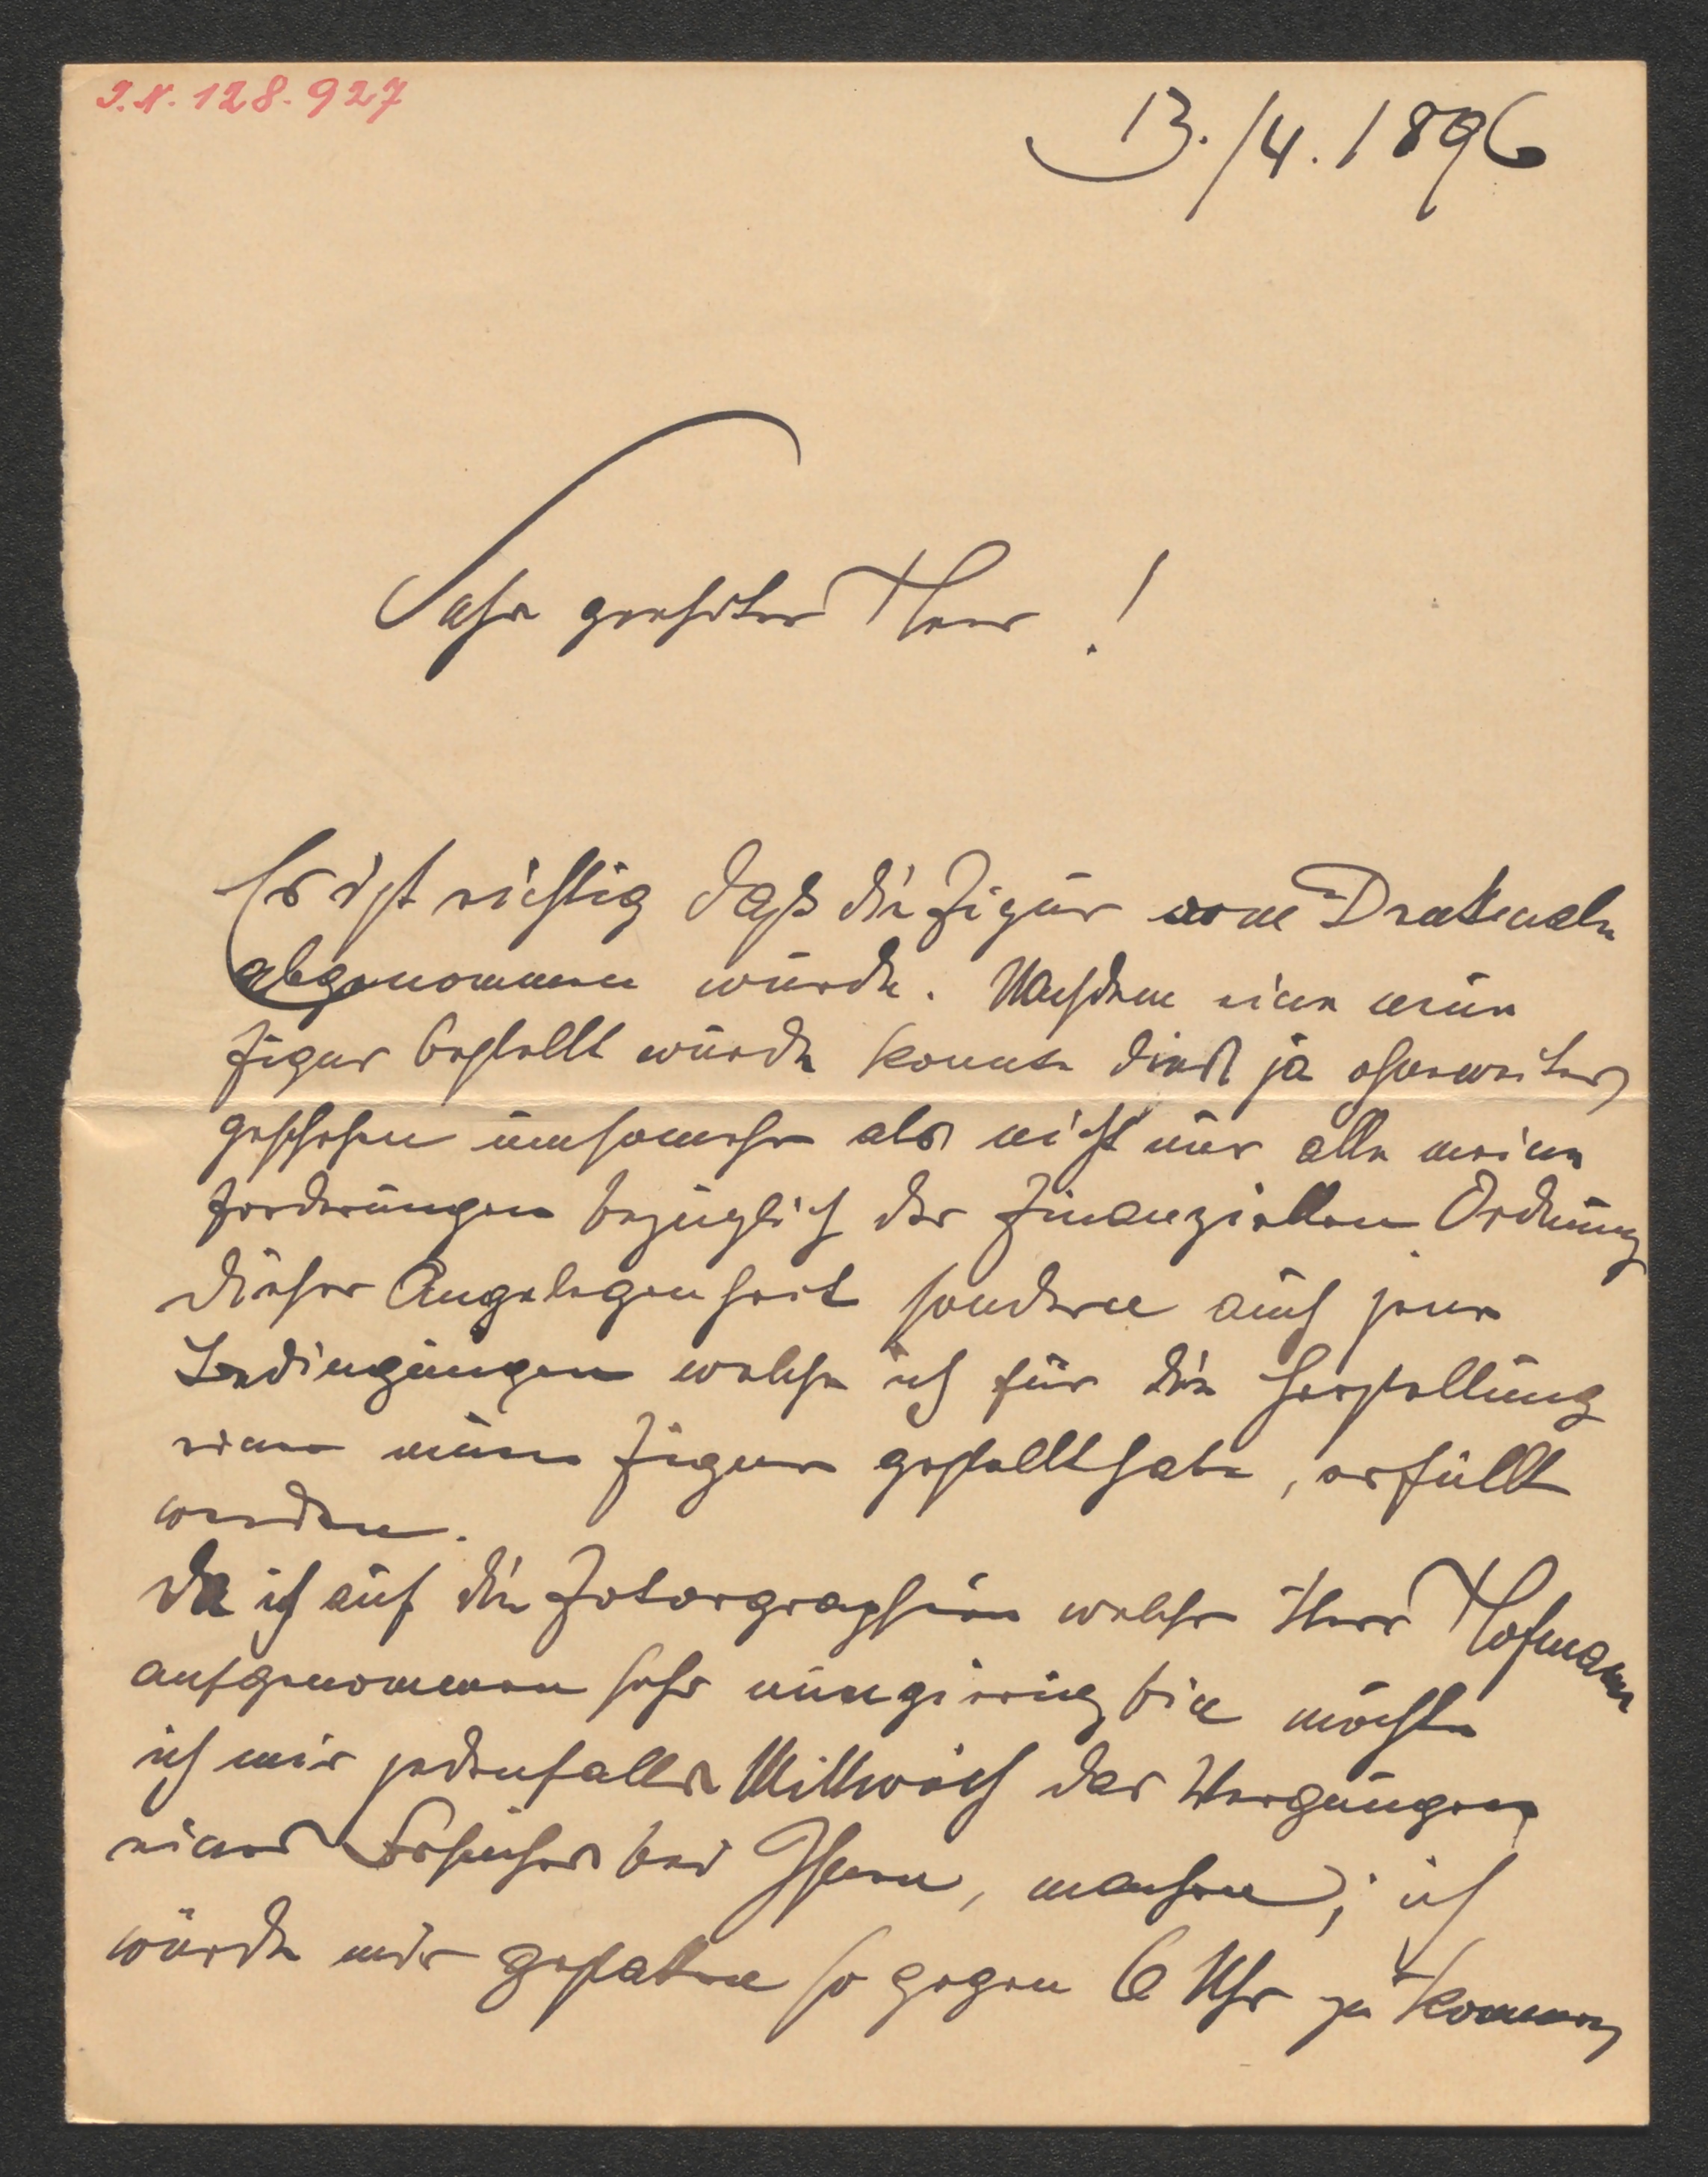 I.N. 128.927
13./4. 1896
Sehr geehrter Herr!
Es ist richtig daß die Figur vom Denkmale
abgenommen wurde. Nachdem eine neue
Figur bestellt wurde konnte dies ja ohneweiters
geschehen umsomehr als nicht nur alle meine
Forderungen bezüglich der finanziellen Ordnung
dieser Angelegenheit sondern auch jene
Bedingungen welche ich für die Herstellung
einer neuen Figur gestellt habe, erfüllt
werden.
Da ich auf die Fotorgraphien welche Herr Hofmann
aufgenommen sehr neugierig bin möchte
ich mir jedenfalls Mittwoch das Vergnügen
eines Besuches bei Ihnen, machen; ich
würde mir gestatten so gegen 6 Uhr zu kommen